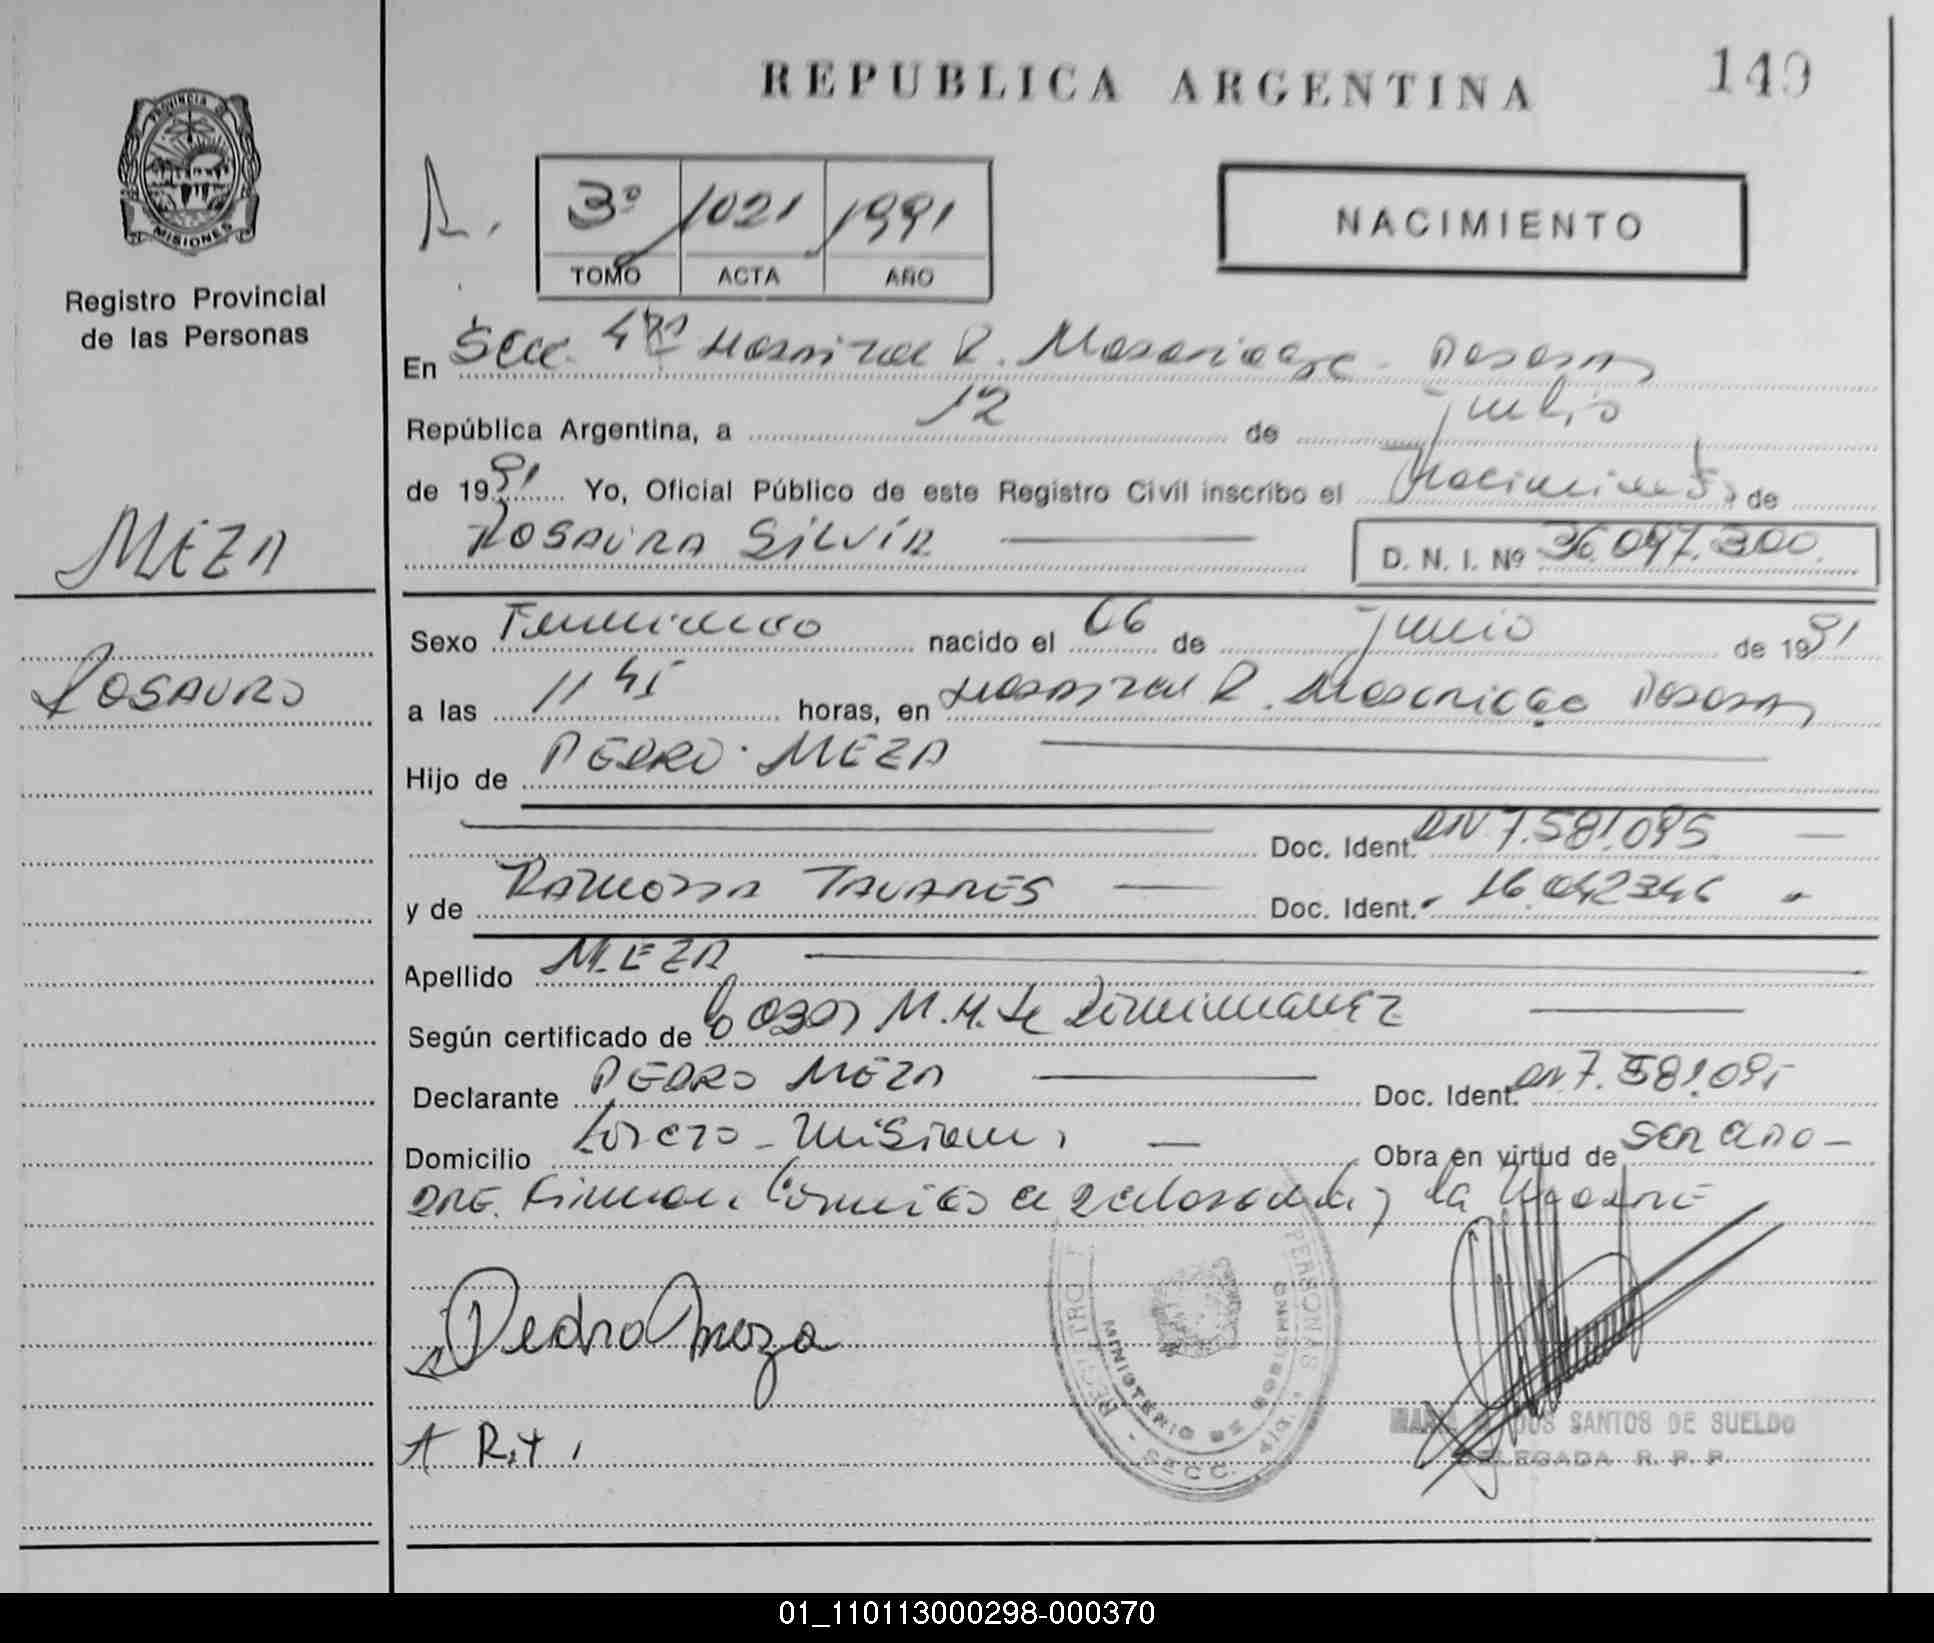 PROVINCIA DE
MISIONES
Registro Provincial
de las Personas
MEZA
ROSAURA
REPUBLICA ARGENTINA
149
3º 1021 1991
TOMO ACTA AÑO
NACIMIENTO
En Secc. 4ta Hospital R. Madariaga - Posadas
República Argentina, a 12 de Julio
de 1991 Yo, Oficial Público de este Registro Civil inscribo el Nacimiento de
ROSAURA SILVIA D. N. I. Nº 36.047.300
Sexo Femenino nacido el 06 de Junio de 1991
a las 11 45 horas, en Hospital R. Madariaga Posadas
Hijo de PEDRO MEZA
Doc. Ident. DNI 7.581.095
y de RAMONA TAVARES Doc. Ident. 16.042346
Apellido MEZA
Según certificado de M. H. de
Declarante PEDRO MEZA Doc. Ident. DNI 7.581.095
Domicilio Loreto - Misiones Obra en virtud de ser el Pa-
dre. Firman la Madre
Pedro Meza
R.T.
REGISTRO PERSONAS
MINISTERIO DE GOBIERNO
SECC. 4ta.
DOS SANTOS DE SUELDO
DELEGADA R. P. P.
01_110113000298-000370